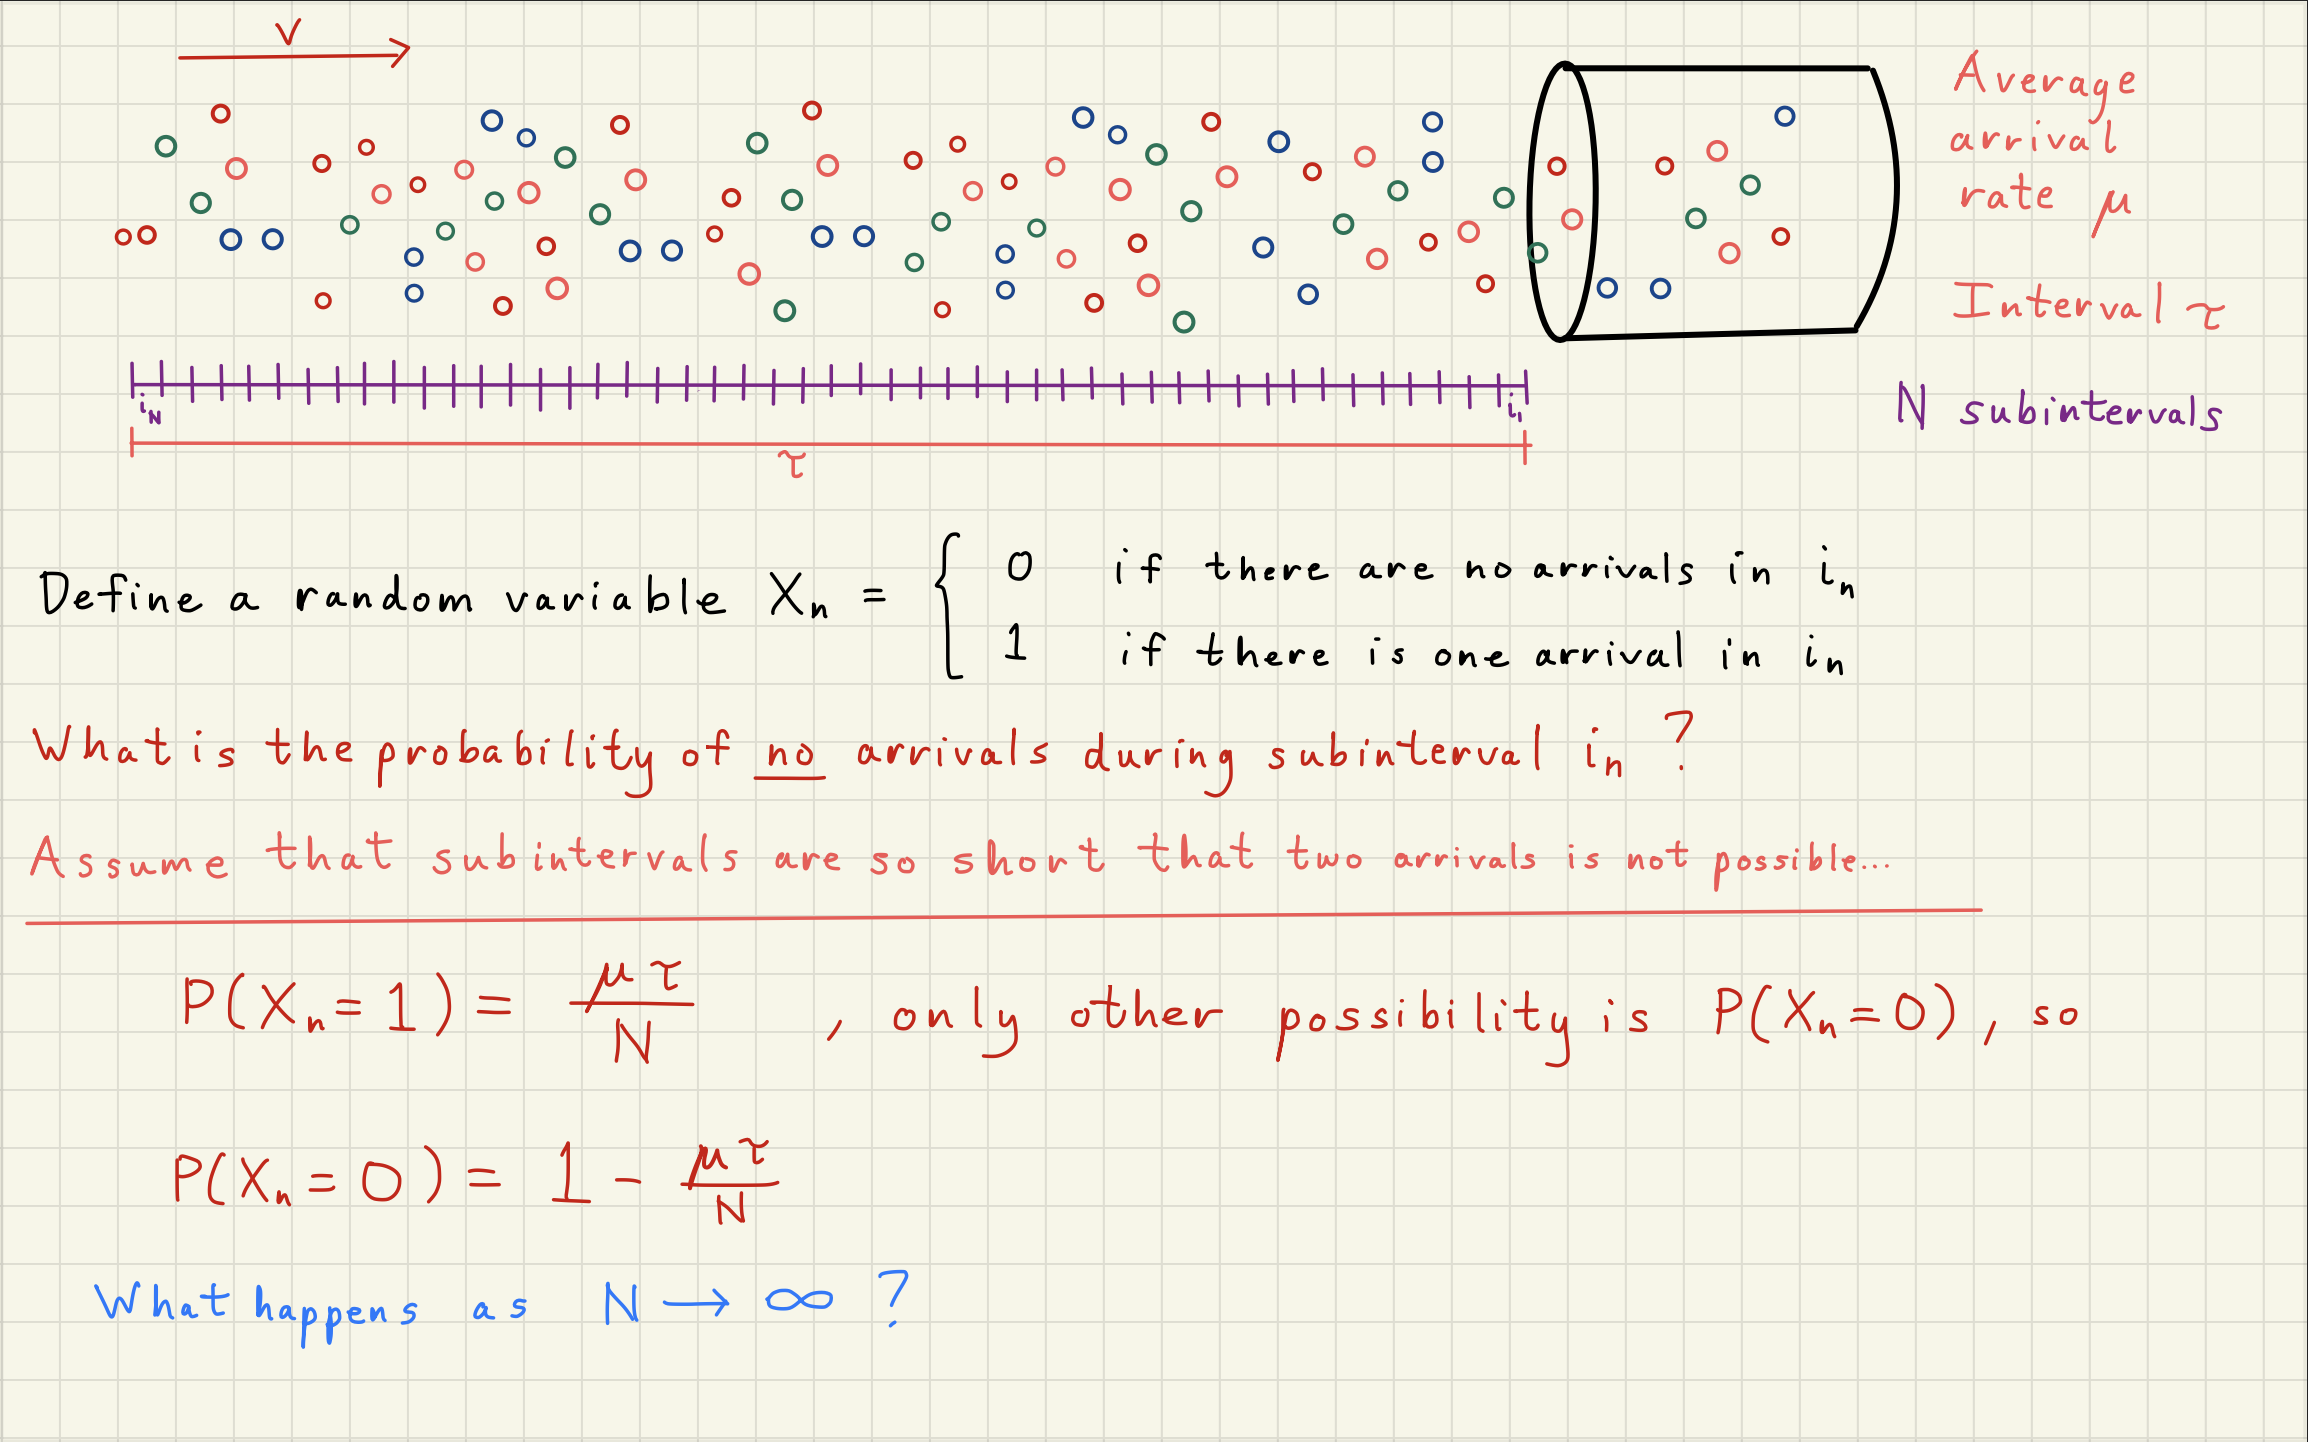 V
Average
arrival
rate μ
Interval τ
N subintervals
i_N
i_1
τ
Define a random variable X_n = { 0 if there are no arrivals in i_n
1 if there is one arrival in i_n
What is the probability of no arrivals during subinterval i_n ?
Assume that subintervals are so short that two arrivals is not possible...
P(X_n = 1) = μτ/N , only other possibility is P(X_n = 0), so
P(X_n = 0) = 1 - μτ/N
What happens as N → ∞ ?